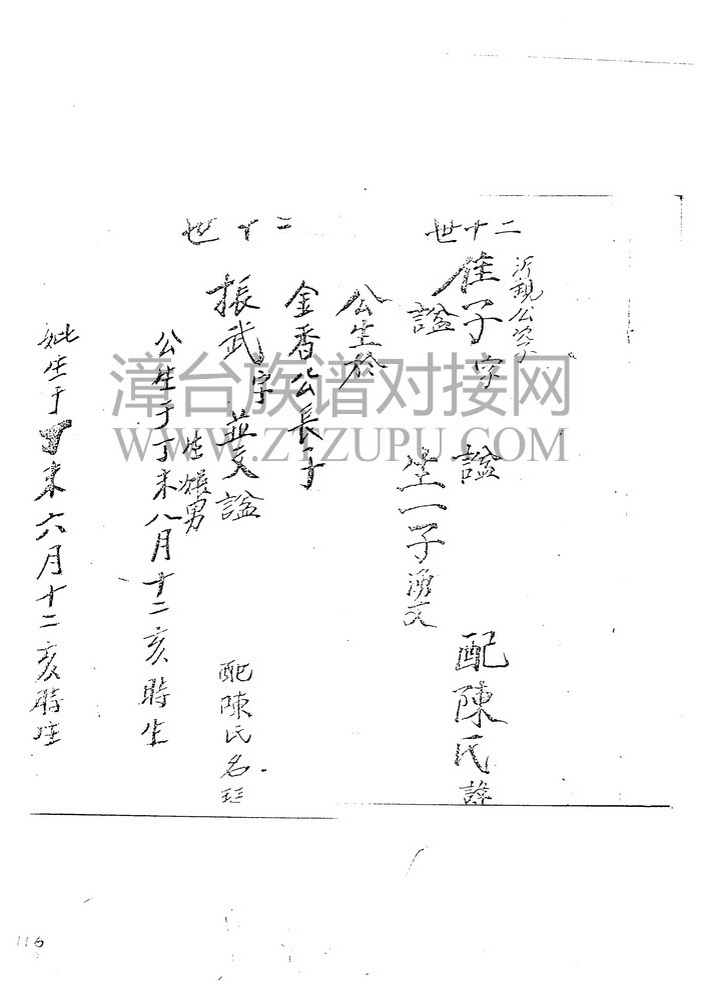 二十世
沂親公次子
佳子字 諡 配陳氏諱
諡 生一子湧文
公生於
二十世
金香公長子
振武字並文諡 配陳氏名
生 男
公生于丁未八月十二亥時生
妣生于丁未六月十二亥時生
漳台族谱对接网
WWW.ZTZUPU.COM
116